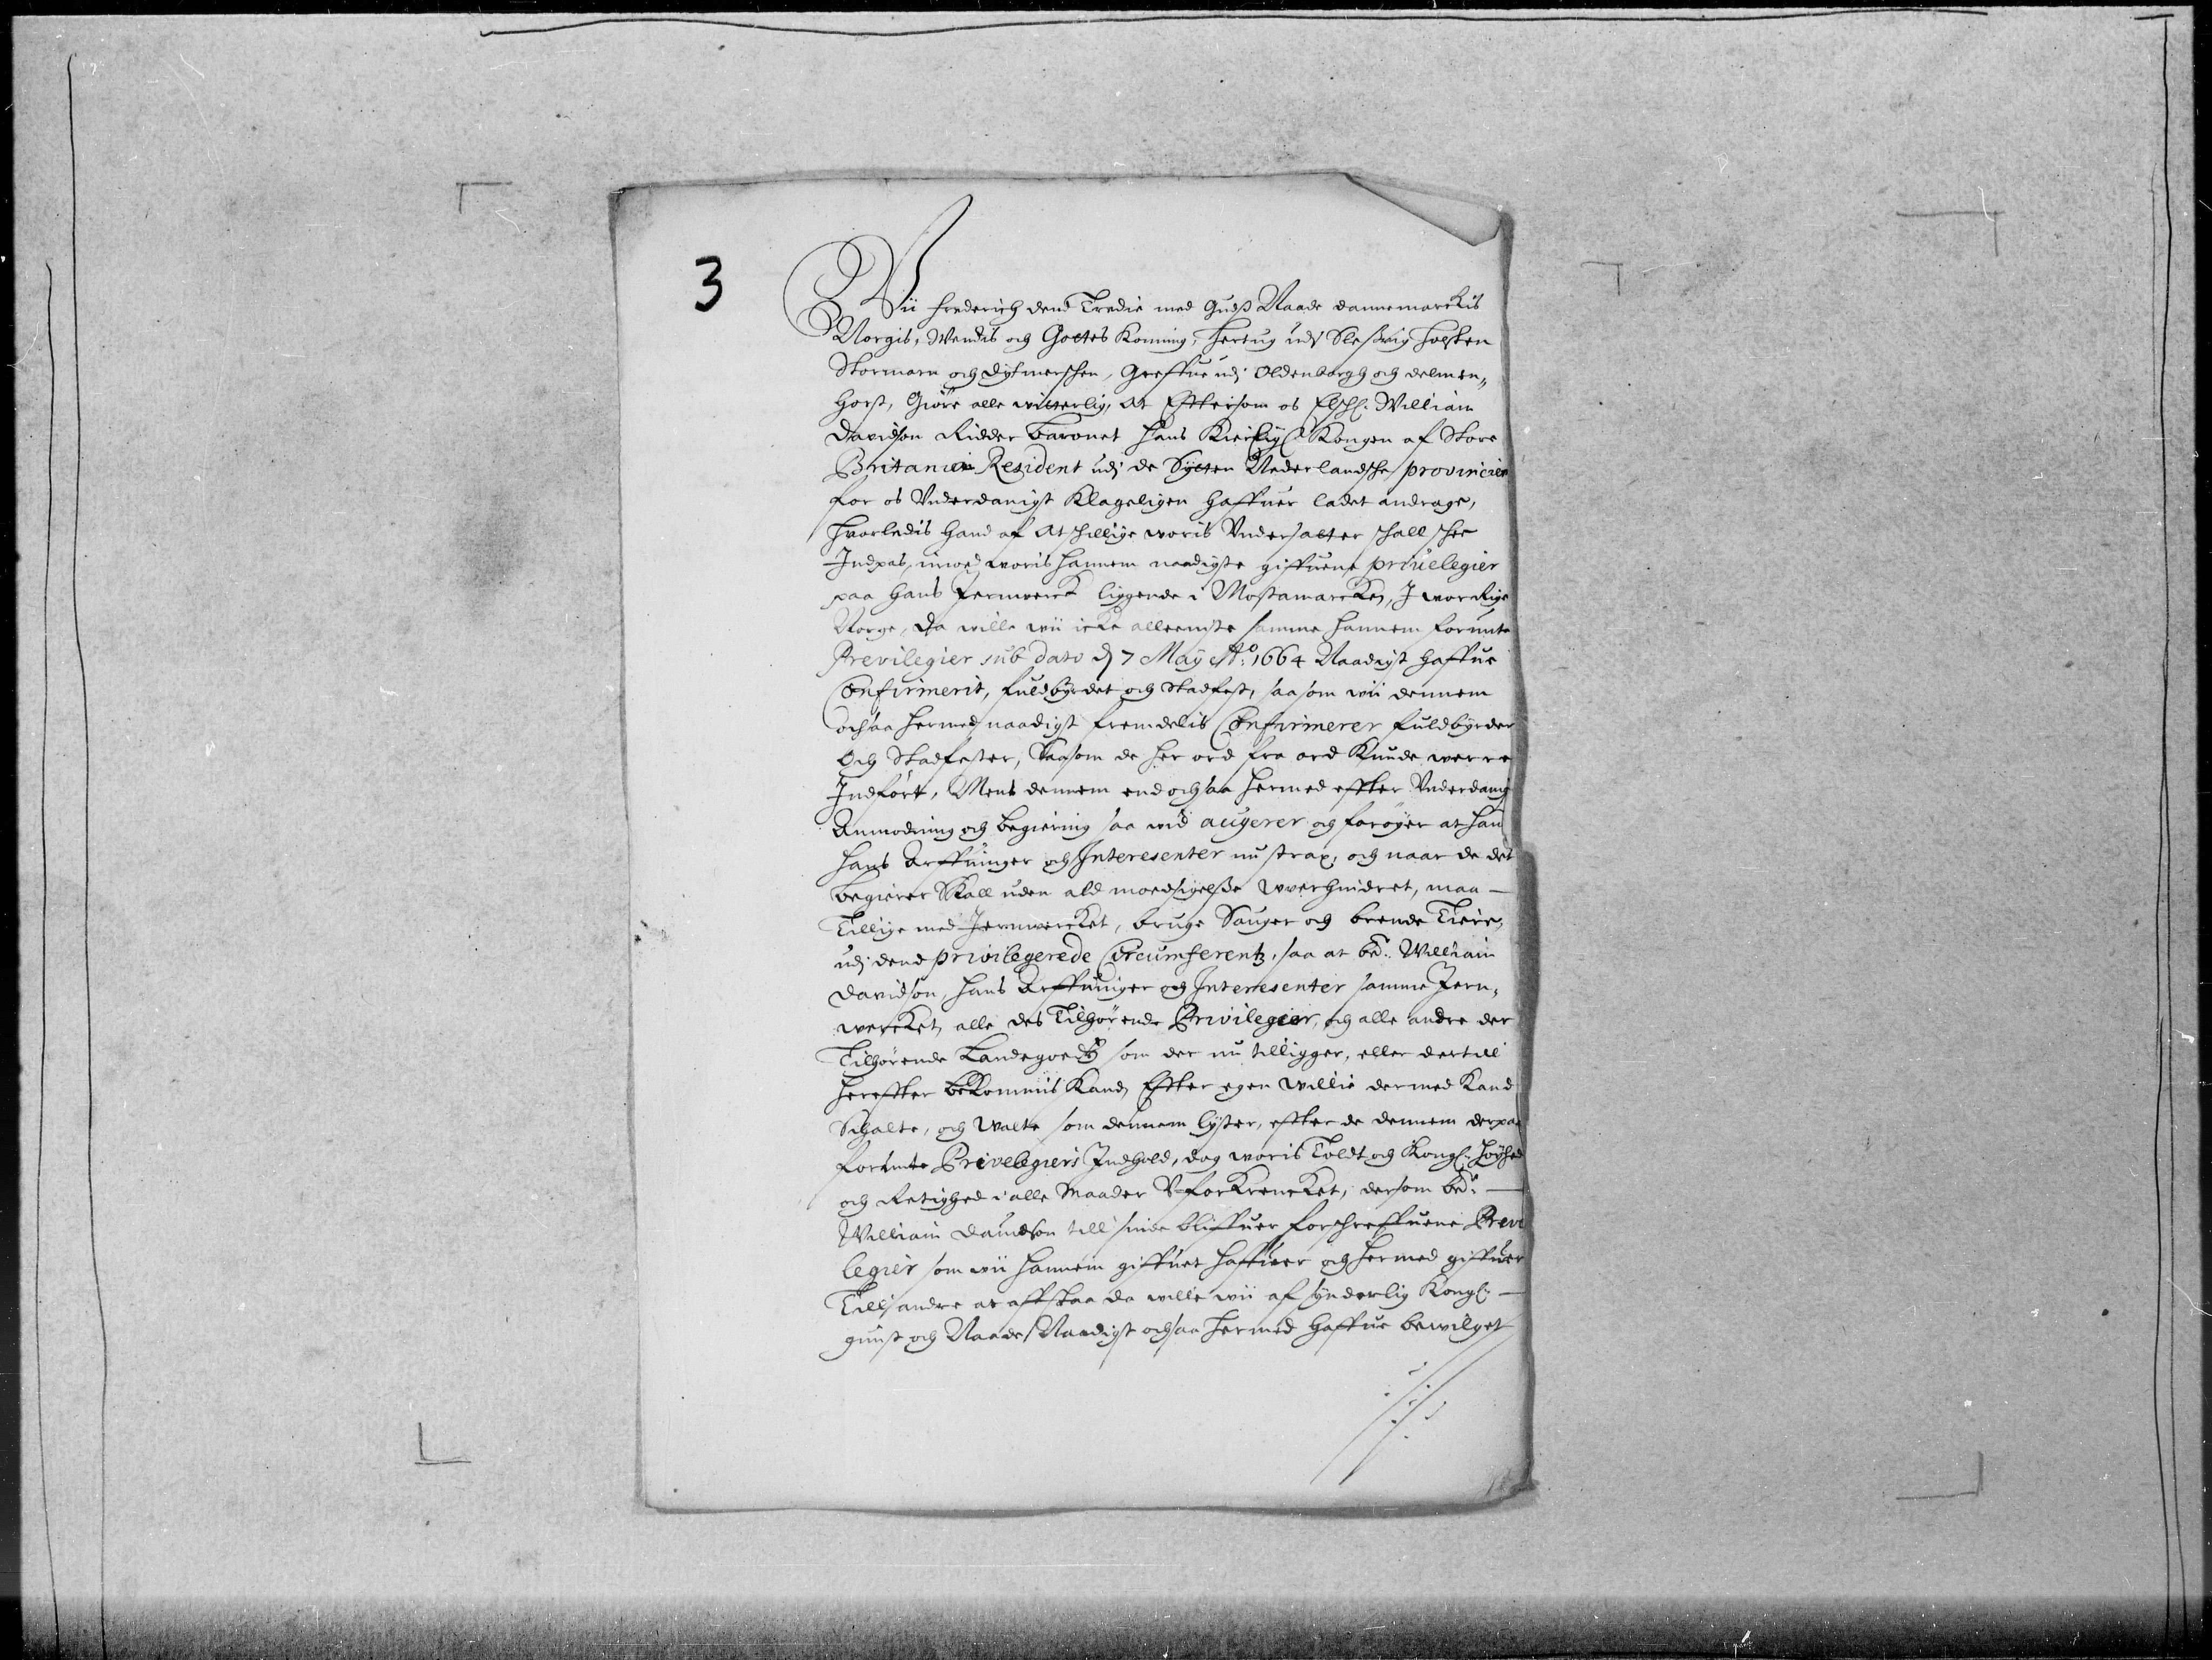 3
Wii Frederich dend Tredie med Gudß Naade Dannemarckis
Norgis, Wendis och Gottes Konning, Hertug udj Sleßvig Holsten
Stormarn och Dytmerschen, Greffue udj Oldenborgh och Delmen„
horst, Giöre alle witterlig, At Eftersom os Elschl: William
Davidson Ridder Baronet Hans Kierligh: Kongen af Store
Britanien Resident udj de Sytten Nederlandsche provincier
for os Underdanigst Klageligen haffuer ladet andrage,
hvorledis hand af Atschillige woris Undersatter schall schee
Indpas, imod woris hannem naadigste giffuene privelegier
paa hans Jernwerck liggende i Mostamarcken, I wor Rige
Norge, da wille wii icke alleeniste samme hannem forundte
Previlegier sub dato d 7 Maij Ao: 1664 Naadigst haffue
Confirmerit, fuldbyrdet och Stadfest, saasom wii dennem
ochsaa hermed naadigst fremdelis Confirmerer fuldbyrder
Och Stadfester, Saasom de her ord fra ord Kunde werre
Indfört, Mens dennem end ochsaa hermed effter Underdanig
Anmodning och begiering saa wid augerer och foröger at hand
hans Arffuinger och Interesenter nu strax, och naar de det
begierer Skall uden ald modsigelße uverhindret, maa —
Tillige med Jernwercket, bruge Sauger och brende Tiere,
udj dend privilegerede Circumferentz, saa at bd: William
Davidson, hans Arffuinger och Interesenter samme Jern„
wercket, alle des Tilhörende Privilegier, och alle andre der
Tilhörende Landegoedß som der nu tilligger, eller dertill
hereffter bekommis Kand, Effter egen willie dermed Kand
Schalte, och walte som dennem lyster, effter de dennem derpaa
forundte Privelegiers Indhold, dog woris Toldt och Kongl: höyhed
och Retighed i alle Maader Uforkrencket, dersom bd: —
William Davidson till sinde bliffuer forschreffuene Previ
legier som wii hannem giffuet haffuer och hermed giffuer
Till andre at affstaa da wille wii af synderlig Kongl: —
gunst och Naade Naadigst ochsaa hermed haffue bewilget